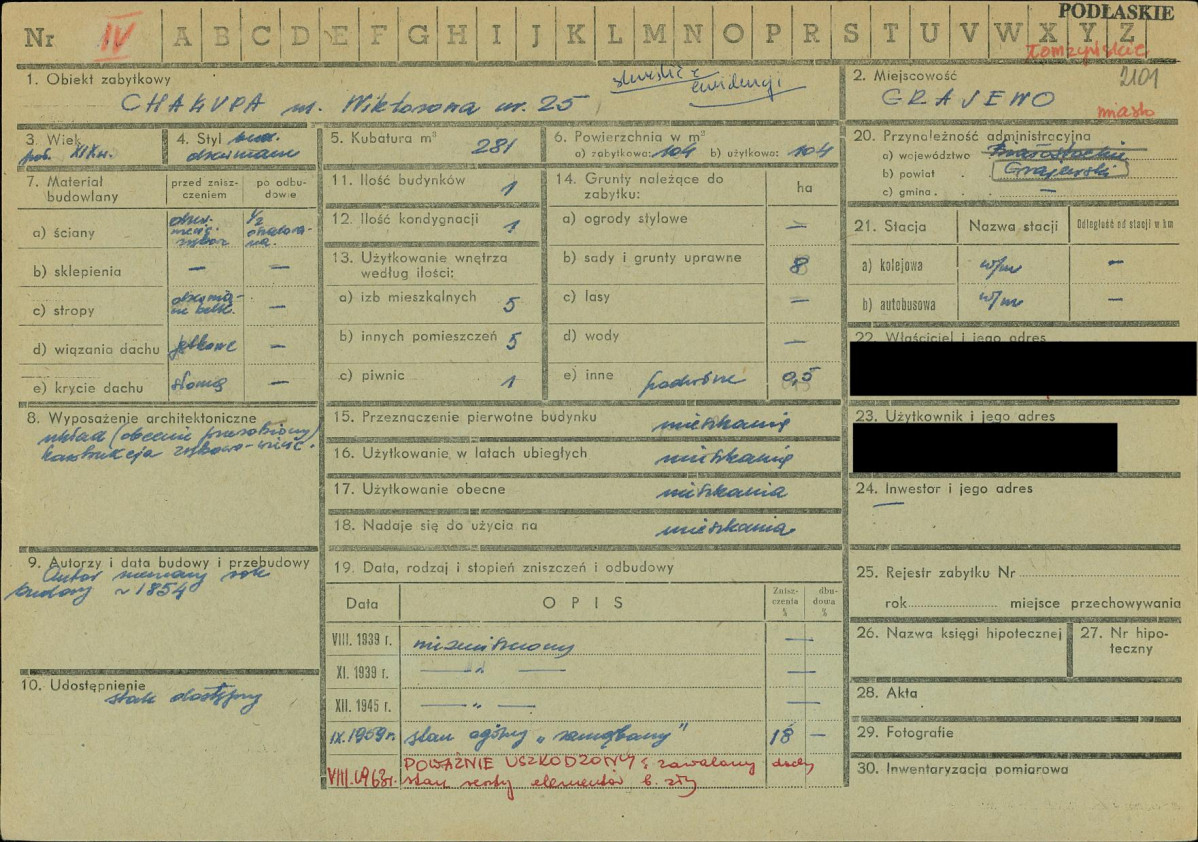 PODŁASKIE
Nr IV A B C D E F G H I J K L M N O P R S T U V W X Y Z
Łomżyńskie
2101
1. Obiekt zabytkowy
CHAŁUPA ul. Wiktorowa nr. 25
skreślić z
ewidencji
2. Miejscowość
GRAJEWO
miasto
3. Wiek
poł. XIX w.
4. Styl bud.
drewniane
5. Kubatura m³ 281
6. Powierzchnia w m²
a) zabytkowa: 104 b) użytkowa: 104
7. Materiał budowlany
przed zniszczeniem
po odbudowie
a) ściany
drew.
1/2
b) sklepienia — —
c) stropy
belk. —
d) wiązania dachu jętkowe —
e) krycie dachu słomą —
8. Wyposażenie architektoniczne
układ (obecnie
konstrukcja
9. Autorzy i data budowy i przebudowy
Autor nieznany rok
budowy ~1854
10. Udostępnienie
stale dostępny
11. Ilość budynków 1
12. Ilość kondygnacji 1
13. Użytkowanie wnętrza
według ilości:
a) izb mieszkalnych 5
b) innych pomieszczeń 5
c) piwnic 1
14. Grunty należące do
zabytku:
ha
a) ogrody stylowe —
b) sady i grunty uprawne 8
c) lasy —
d) wody —
e) inne podwórze 0,5
15. Przeznaczenie pierwotne budynku mieszkanie
16. Użytkowanie w latach ubiegłych mieszkanie
17. Użytkowanie obecne mieszkania
18. Nadaje się do użycia na mieszkania
19. Data, rodzaj i stopień zniszczeń i odbudowy
Data
OPIS
Zniszczenia %
dbudowa %
VIII. 1939 r. niezniszczony —
XI. 1939 r. —„— —
XII. 1945 r. —„— —
IX.1959r. stan ogólny „zaniedbany” 18 —
VIII.1963r. POWAŻNIE USZKODZONY; zawalony dach
stan reszty elementów b. zły
20. Przynależność administracyjna
a) województwo Białostockie
b) powiat Grajewski
c) gmina —
21. Stacja
Nazwa stacji
Odległość od stacji w km
a) kolejowa w/m —
b) autobusowa w/m —
22. Właściciel i jego adres
23. Użytkownik i jego adres
24. Inwestor i jego adres
—
25. Rejestr zabytku Nr
rok miejsce przechowywania
26. Nazwa księgi hipotecznej
27. Nr hipoteczny
28. Akta
29. Fotografie
30. Inwentaryzacja pomiarowa